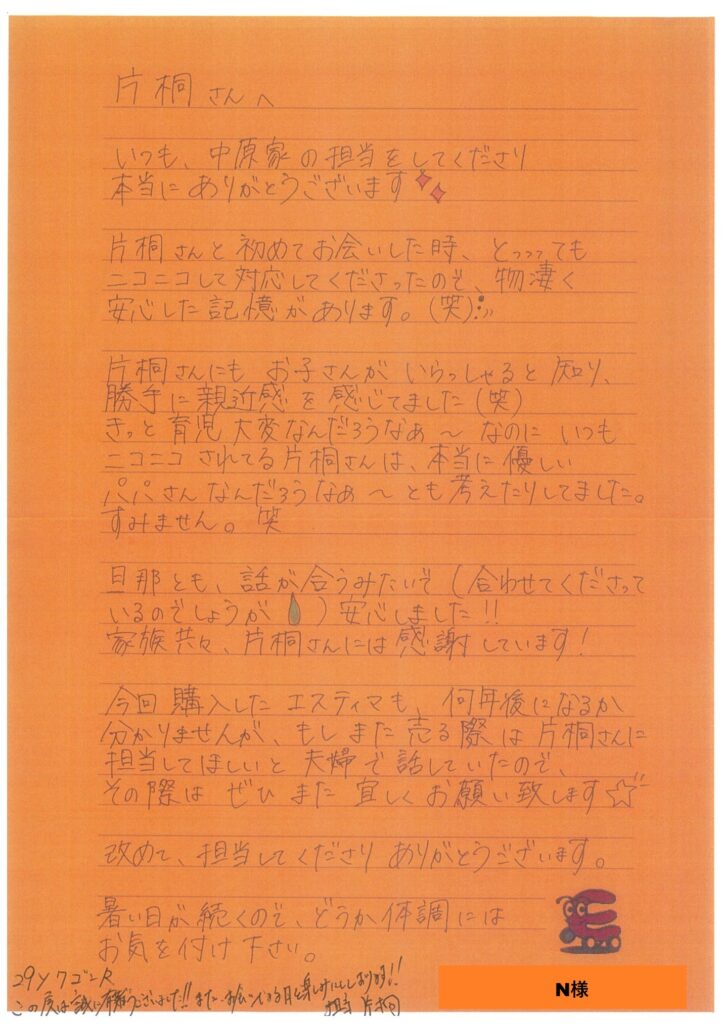 片桐さんへ
いつも、中原家の担当をしてくださり
本当にありがとうございます
片桐さんと初めてお会いした時、とっっっても
ニコニコして対応してくださったので、物凄く
安心した記憶があります。(笑)
片桐さんにもお子さんがいらっしゃると知り、
勝手に親近感を感じてました(笑)
きっと育児大変なんだろうなぁ〜なのにいつも
ニコニコされてる片桐さんは、本当に優しい
パパさんなんだろうなぁ〜とも考えたりしてました。
すみません。笑
旦那とも、話が合うみたいで(合わせてくださって
いるのでしょうが)安心しました!!
家族共々、片桐さんには感謝しています!
今回購入したエスティマも、何年後になるか
分かりませんが、もしまた売る際は片桐さんに
担当してほしいと夫婦で話していたので、
その際はぜひまた宜しくお願い致します☆
改めて、担当してくださりありがとうございます。
暑い日が続くので、どうか体調には
お気を付け下さい。
29Y ワゴンR
この度は誠に有難うございました!!また、お会いできる日を楽しみにしております!!
担当 片桐
N様